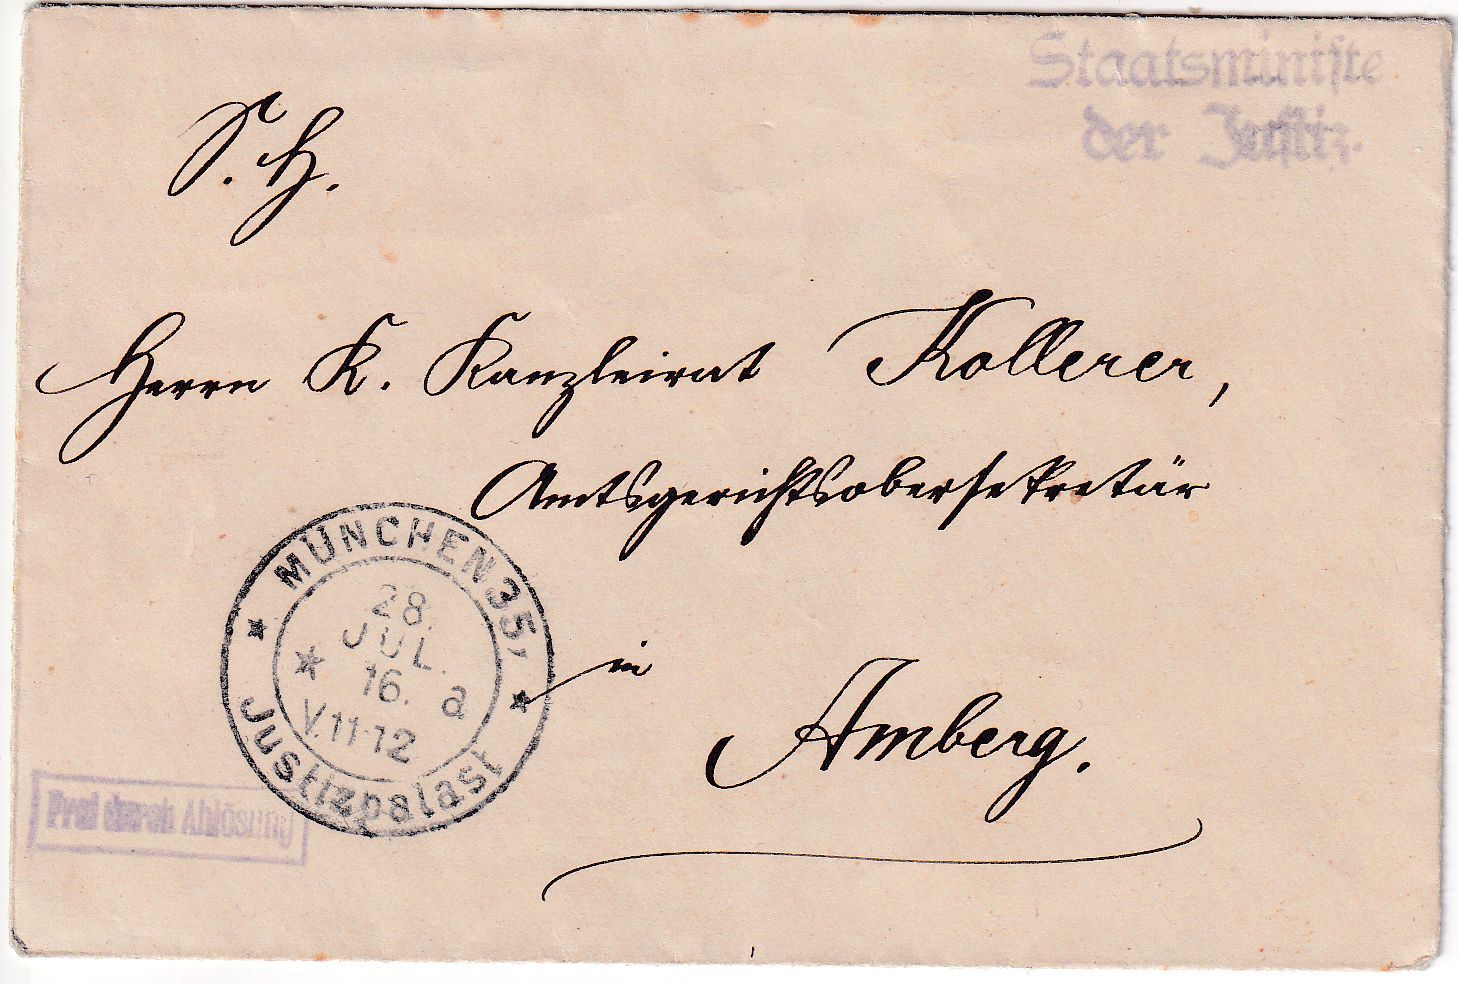 Staatsministe
der Justiz.
S. H.
Herrn K. Kanzleirat Kollerer,
Amtsgerichtsobersekretär
in
Amberg.
MÜNCHEN 35,
28.
JUL.
16. a
V.11-12
Justizpalast
Frei durch Ablösung